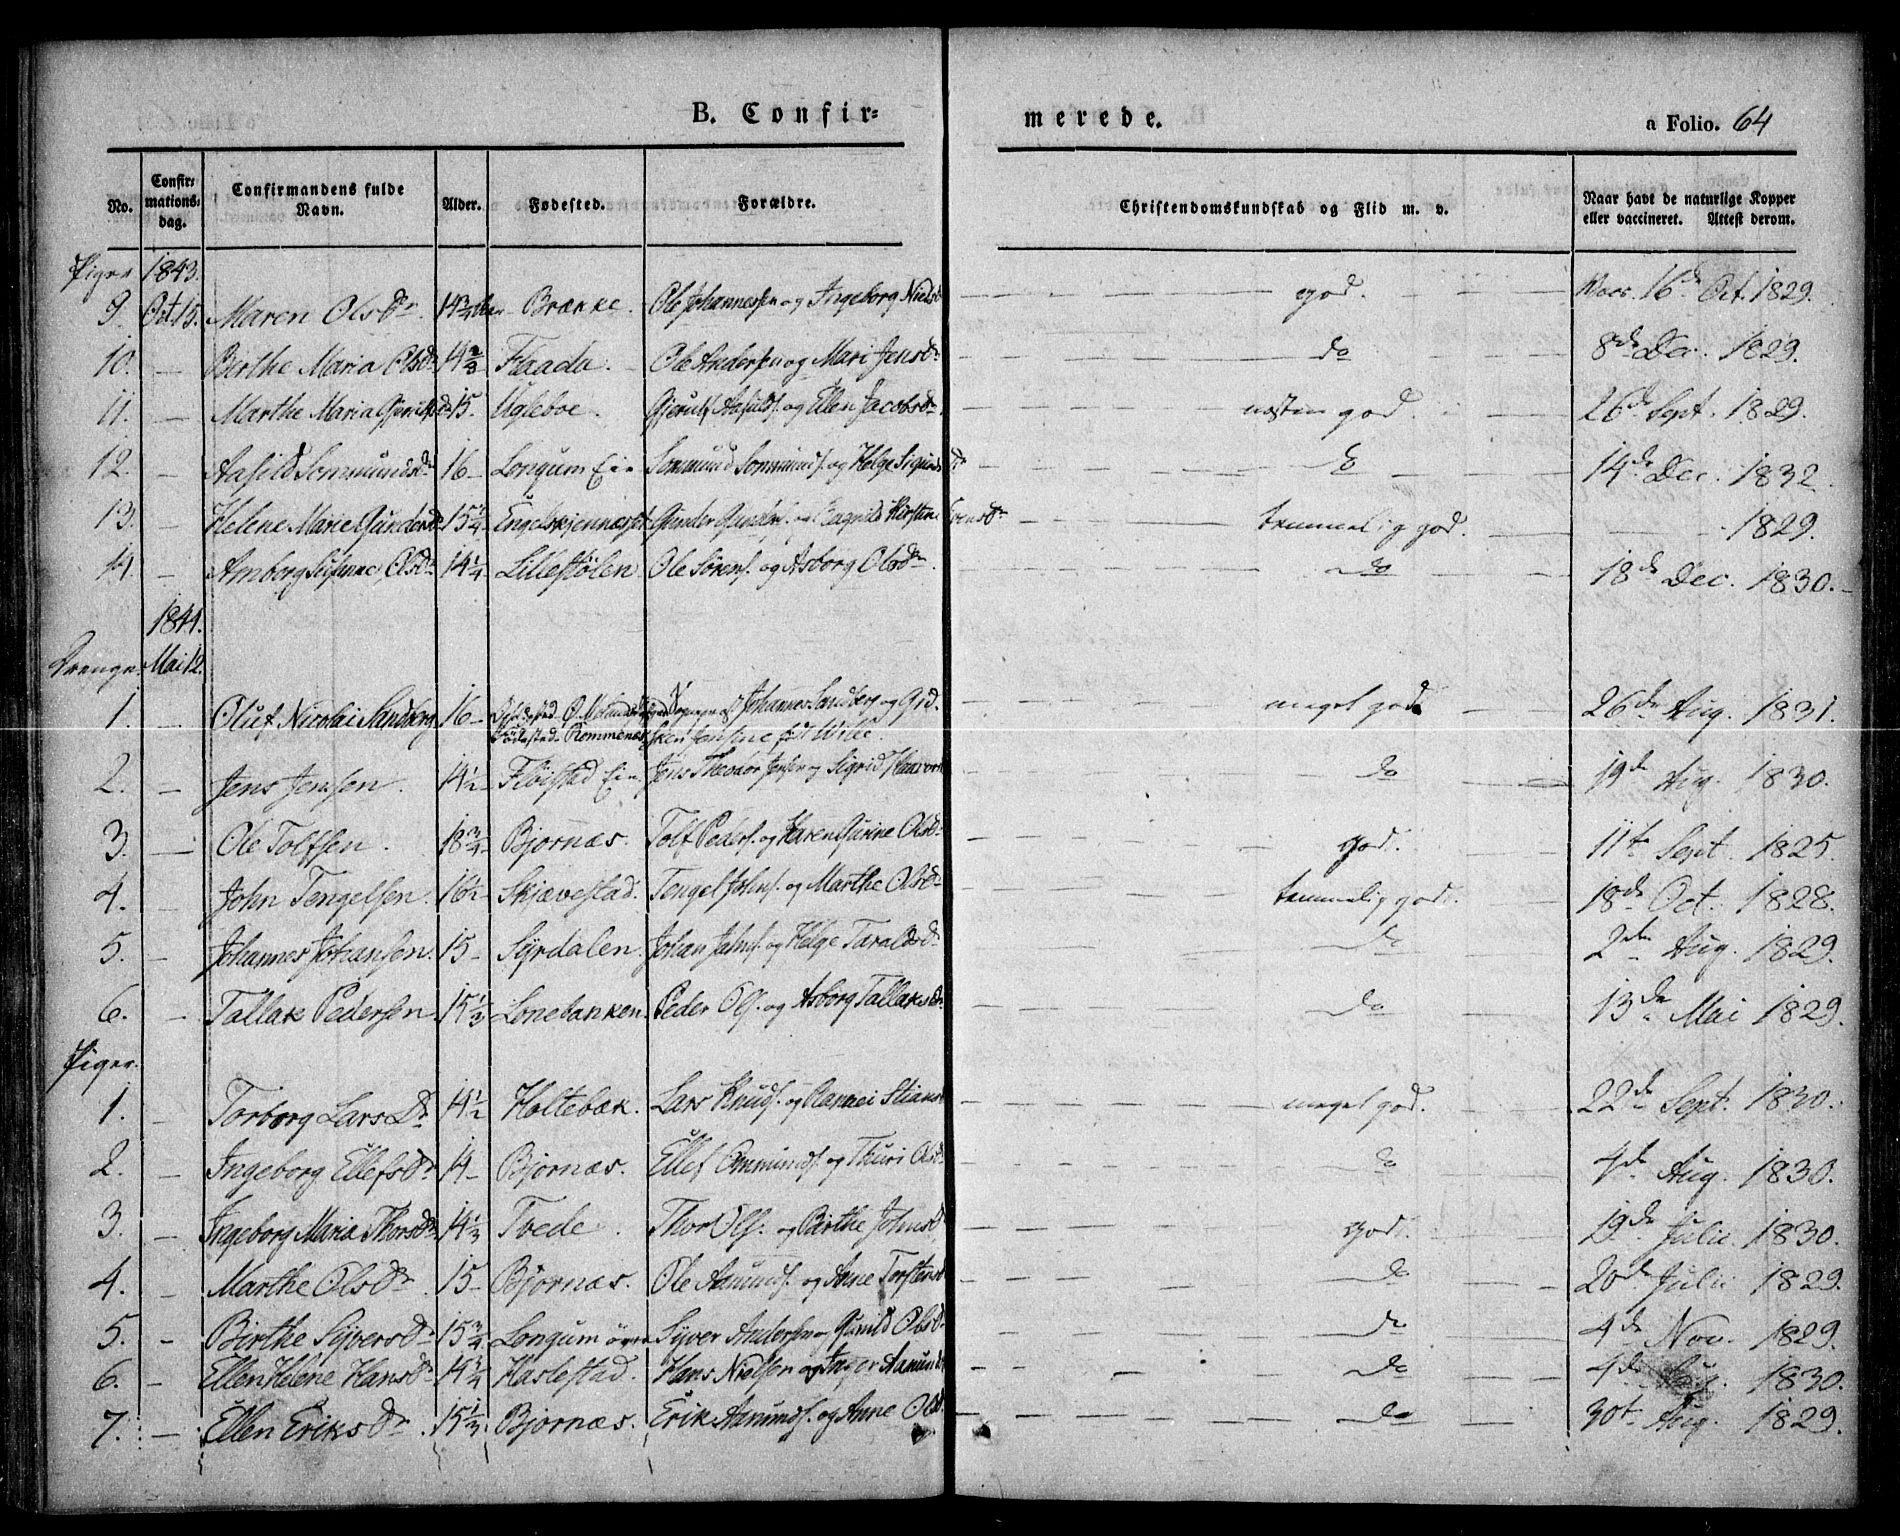 B. Confir=
merede.
a Folio. 64
No.
Confir=
mations=
dag.
Confirmandens fulde
Navn.
Alder.
Fødested.
Forældre.
Christendomskundskab og Flid m. v.
Naar havt de naturlige Kopper
eller vaccineret. Attest derom.
Piger 1843.
9. Oct 15. Maren Olsdr. 14 3/4 Brække. Ole Johannessen og Ingeborg Nielsd god. Vacc. 16de Oct. 1829.
10. — Birthe Maria Olsdr 14 2/3 Flaada. Ole Andersen og Mari Jensdr do 8de Dec. 1829.
11. — Marthe Maria 15. Ugleboe. Gjerulf Aasulds. og Ellen Jacobsdr næsten god. 26de Sept. 1829.
12. — Aasild Sommundsdr 16 – Longum Eie Sommund Sommunds. og Helge Sigurdsdr do 14de Dec. 1832.
13. — Helene Marie Gundersdr 15 1/4 Gunder Gunders. og Ragnild Kirstine Evensdr temmelig god. 1829.
14. — Amborg Susanne Olsdr 14 1/4 Lillestølen Ole Sörens. og Asborg Olsdr. do 18de Dec. 1830.
1844.
Drenge. Mai 12.
1. Oluf Nicolai Sandberg 16 – Johannes Sandberg og Gid- meget god. 26de Aug. 1831.
Födested Remmenæs sken Jensine föd Wille.
2. — Jens Jensen. 14 1/2 Flöistad Eie Jens Theodor Jensen og Sigrid Haavors do 19de Aug. 1830.
3. — Ole Tolfsen. 18 3/4 Bjornæs. Tolf Peders. og Karen Gurine Olsdr god. 11te Sept. 1825.
4. — John Tengelsen. 16 1/2 Skjævestad. Tengel Johns. og Marthe Olsdr temmelig god. 18de Oct. 1828.
5. — Johannes Johansen. 15 – Syrdalen. Johan Jahns. og Helge Taraldsdr do 2den Aug. 1829.
6. — Tallak Pedersen. 15 1/3 Lonebanken. Peder Ols. og Asborg Tallaksdr do 13de Mai 1829.
Piger.
1. — Torborg Larsdr 14 1/2 Holtebæk. Lars Knuds. og Rannei Stiansd meget god. 22de Sept. 1830.
2. — Ingeborg Ellefsdr 14 – Bjornæs. Ellef Ommunds. og Thuri Olsd do 4de Aug. 1830.
3. — Ingeborg Maria Thorsdr 14 1/3 Tvede. Thor Ols. og Birthe Johnsd god. 19de Julii 1830.
4. — Marthe Olsdr 15 – Bjornæs. Ole Aamunds. og Anne Torstensd do 20de Julii 1829.
5. — Birthe Syversdr 15 3/4 Longum övre Syver Andersen og Gunild Olsdr do 4de Nov. 1829.
6. — Ellen Helene Hansdr 14 3/4 Haslestad. Hans Nielsen og Inger Aamunds do 4de Aug. 1830.
7. — Ellen Eriksdr 15 1/3 Bjornæs. Erik Aamunds. og Anne Olsd. do 30te Aug. 1829.